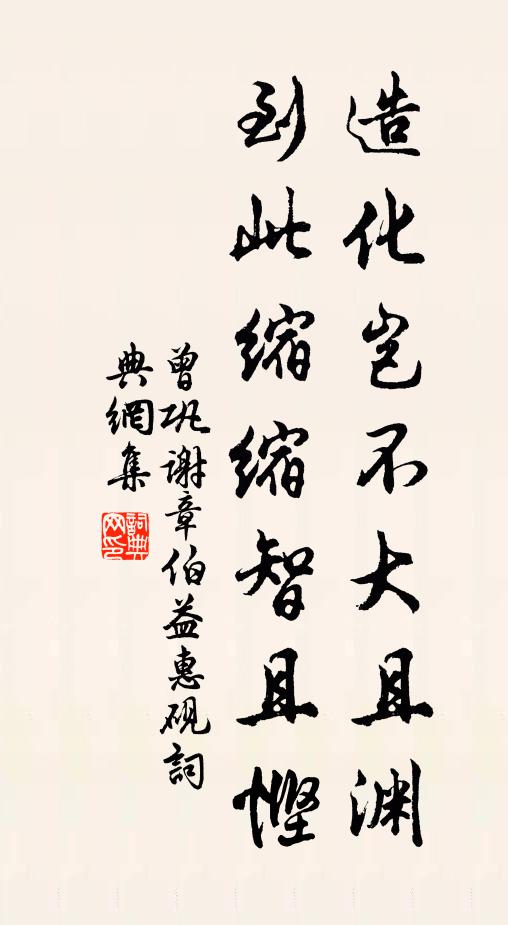 造化岂不大且渊
到此缩缩智且慳
曾巩谢章伯益惠砚詞
典網集
詞典
网印